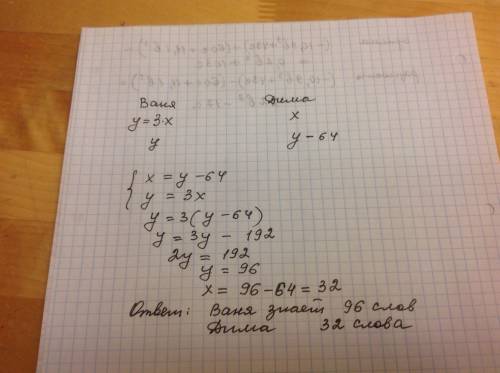 Ваня Дима
y = 3·x x
y y − 64
{ x = y − 64
y = 3x
y = 3(y − 64)
y = 3y − 192
2y = 192
y = 96
x = 96 − 64 = 32
Ответ: Ваня знает 96 слов
Дима 32 слова